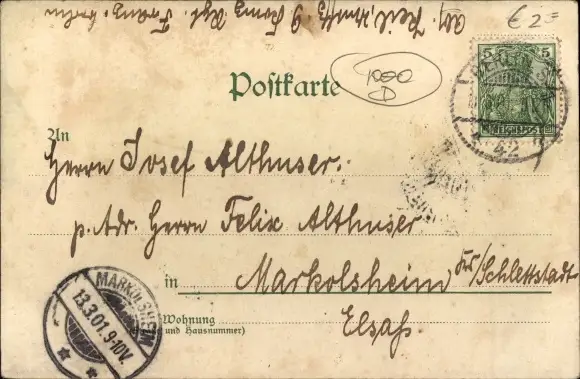 € 2=
5 5
REICHSPOST
42
Postkarte
1000
D
An
Herrn Josef Althuser.
p. Adr. Herrn Felix Althuser
in Markolsheim Krs/Schlettstadt
Elsaß.
Wohnung
und Hausnummer)
MARKOLSHEIM
13.3.01. 9-10V.